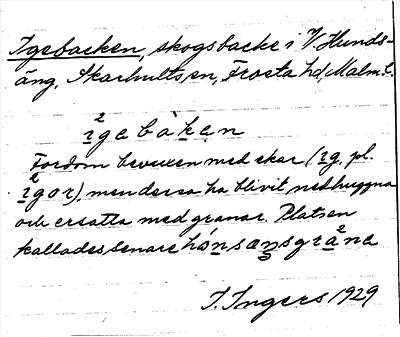 Igebacken, skogsbacke i V. Hunds-
äng, Skarhults sn, Frosta hd, Malm. l.
ı̱²gabàkạn
Fordom beväxen med ekar (ı̱g, pl.
ı̱²gor), men dessa ha blivit nedhuggna
och ersatta med granar. Platsen
kallades senare hǿnsaŋsgra²na
I. Ingers 1929